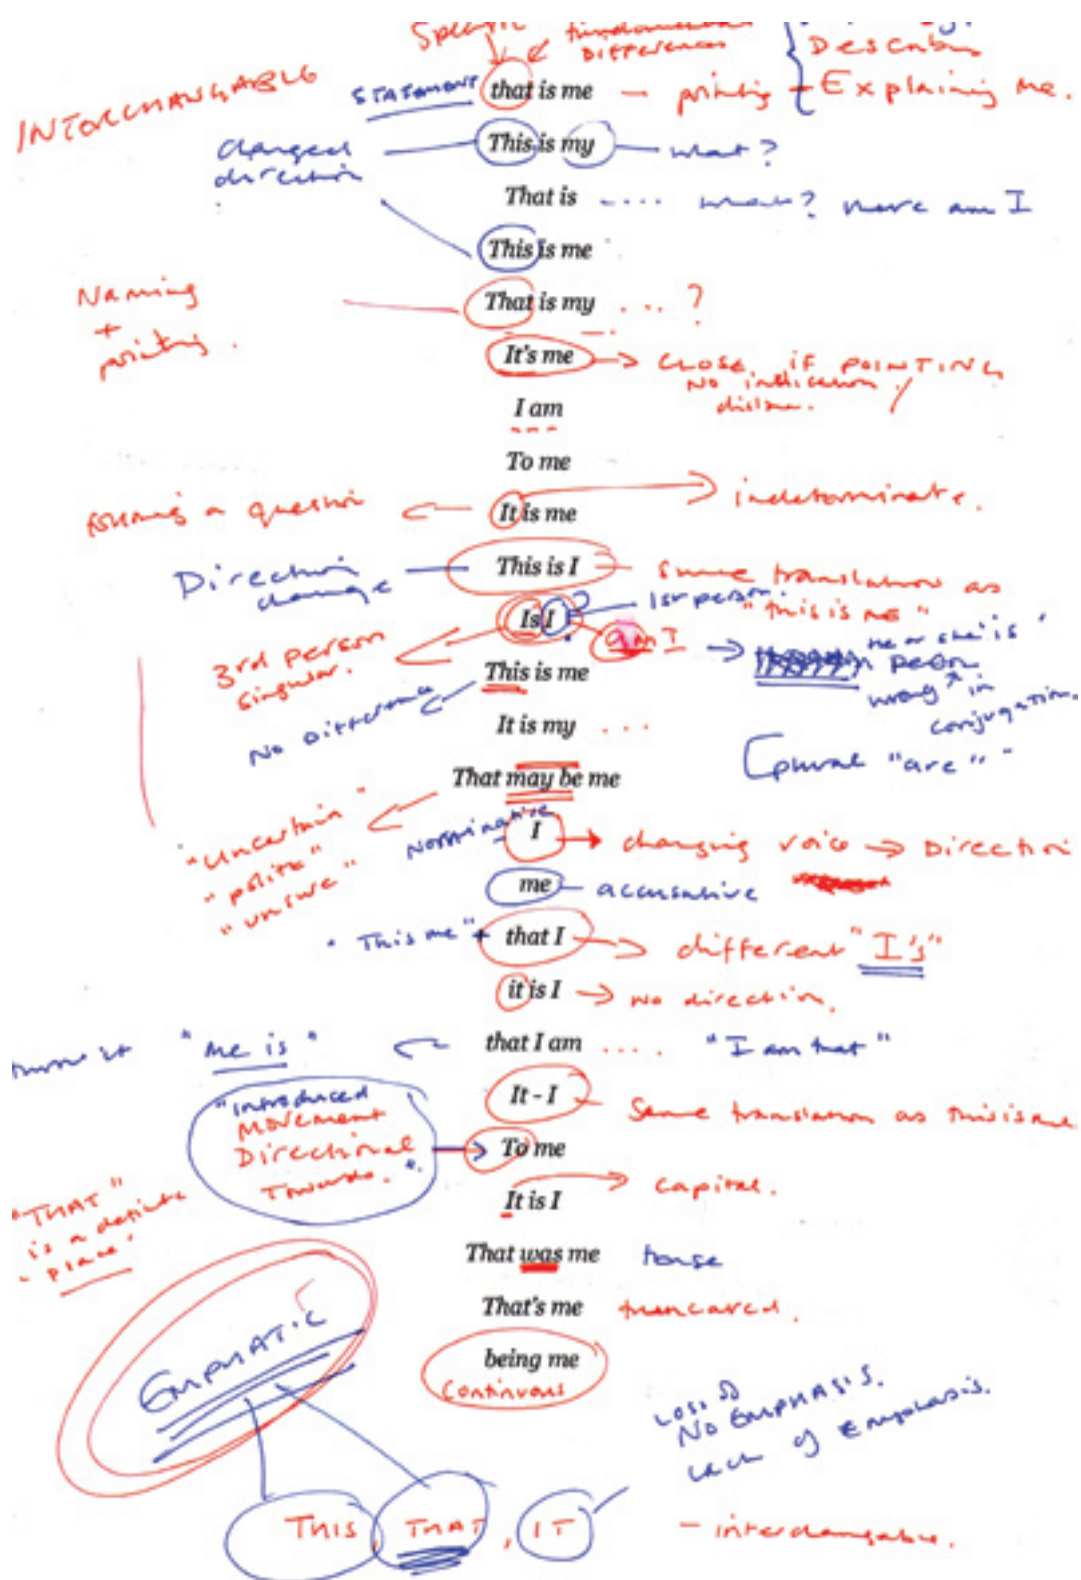 Specific fundamental
DIFFERENCES
Describing
INTERCHANGABLE STATEMENT that is me — pointing — Explaining me.
changed direction This is my what?
That is .... what? where am I
This is me
Naming + pointing. That is my ...?
It's me CLOSE IF POINTING
NO indication / distance.
I am
To me
Asking a question It is me indeterminate.
Direction change This is I same translation as "this is me"
3rd person singular. Is I? 1st person. am I he or she is
person wrong in conjugation.
No Difference This is me
It is my ...
plural "are"
"uncertain" "polite" "unsure" That may be me
Nominative I changing voice → Direction
me accusative
"This me" that I different "I's"
it is I No direction.
"me is" that I am .... "I am that"
"Introduced MOVEMENT Directional Towards."
It - I Same translation as this is me
To me
It is I capital.
"THAT" is a definite "place"
That was me tense
That's me truncated.
being me
continuous
EMPHATIC
Loss of
NO EMPHASIS.
Lack of Emphasis.
THIS, THAT, IT - interchangable.